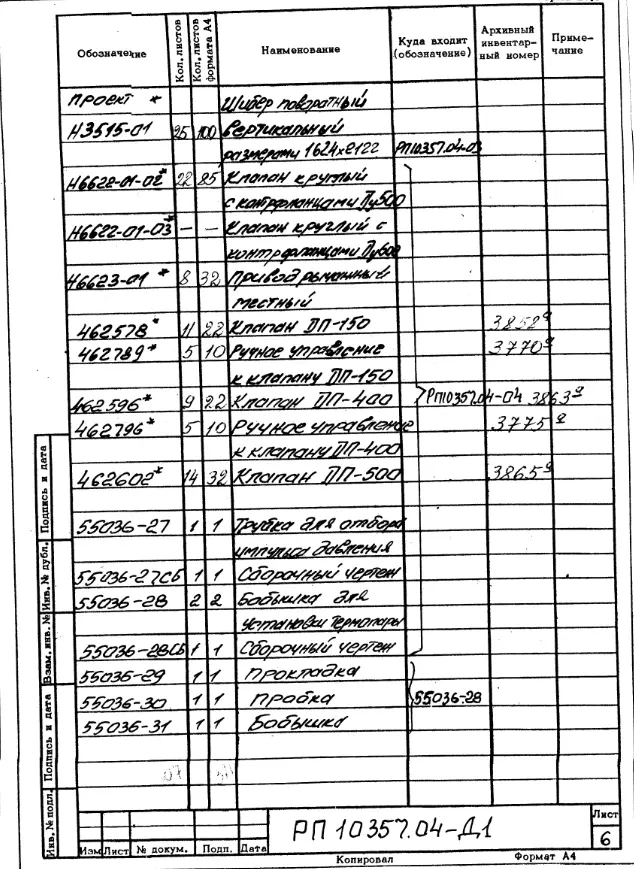 Обозначение Кол. листов Кол. листов формата А4 Наименование Куда входит (обозначение) Архивный инвентар- ный номер Приме- чание
Проект * Шибер поворотный
Н3515-01 25 100 вертикальный
размерами 1624х2122 РП10357.04-03
Н6622-01-02* 22 85 Клапан круглый
с контрфланцами Ду500
Н6622-01-03* — — Клапан круглый с
контрфланцами Ду600
Н6623-01 * 8 32 Привод рычажный
местный
462578* 11 22 Клапан ПП-150 3858д
462789* 5 10 Ручное управление 3770д
к клапану ПП-150
462596* 9 22 Клапан ПП-400 РП10357.04-04 3863д
462796* 5 10 Ручное управление 3775д
к клапану ПП-400
462602* 14 32 Клапан ПП-500 3865д
55036-27 1 1 Трубка для отбора
импульса давления
55036-27СБ 1 1 Сборочный чертеж
55036-28 2 2 Бобышка для
установки термопары
55036-28СБ 1 1 Сборочный чертеж
55036-29 1 1 Прокладка
55036-30 1 1 Пробка 55036-28
55036-31 1 1 Бобышка
Подпись и дата
Инв. № дубл.
Взам. инв. №
Подпись и дата
Инв. № подл.
РП 10357.04-Д1
Лист
6
Изм Лист № докум. Подп. Дата
Копировал Формат А4